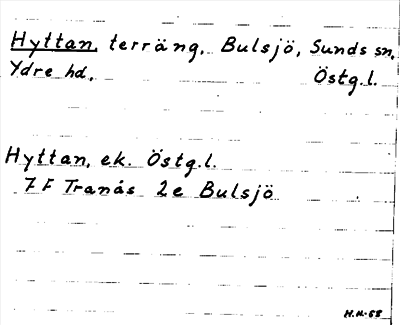 Hyttan, terräng, Bulsjö, Sunds sn,
Ydre hd, Östg.l.
Hyttan, ek. Östg.l.
7 F Tranås 2e Bulsjö
H.N.-68